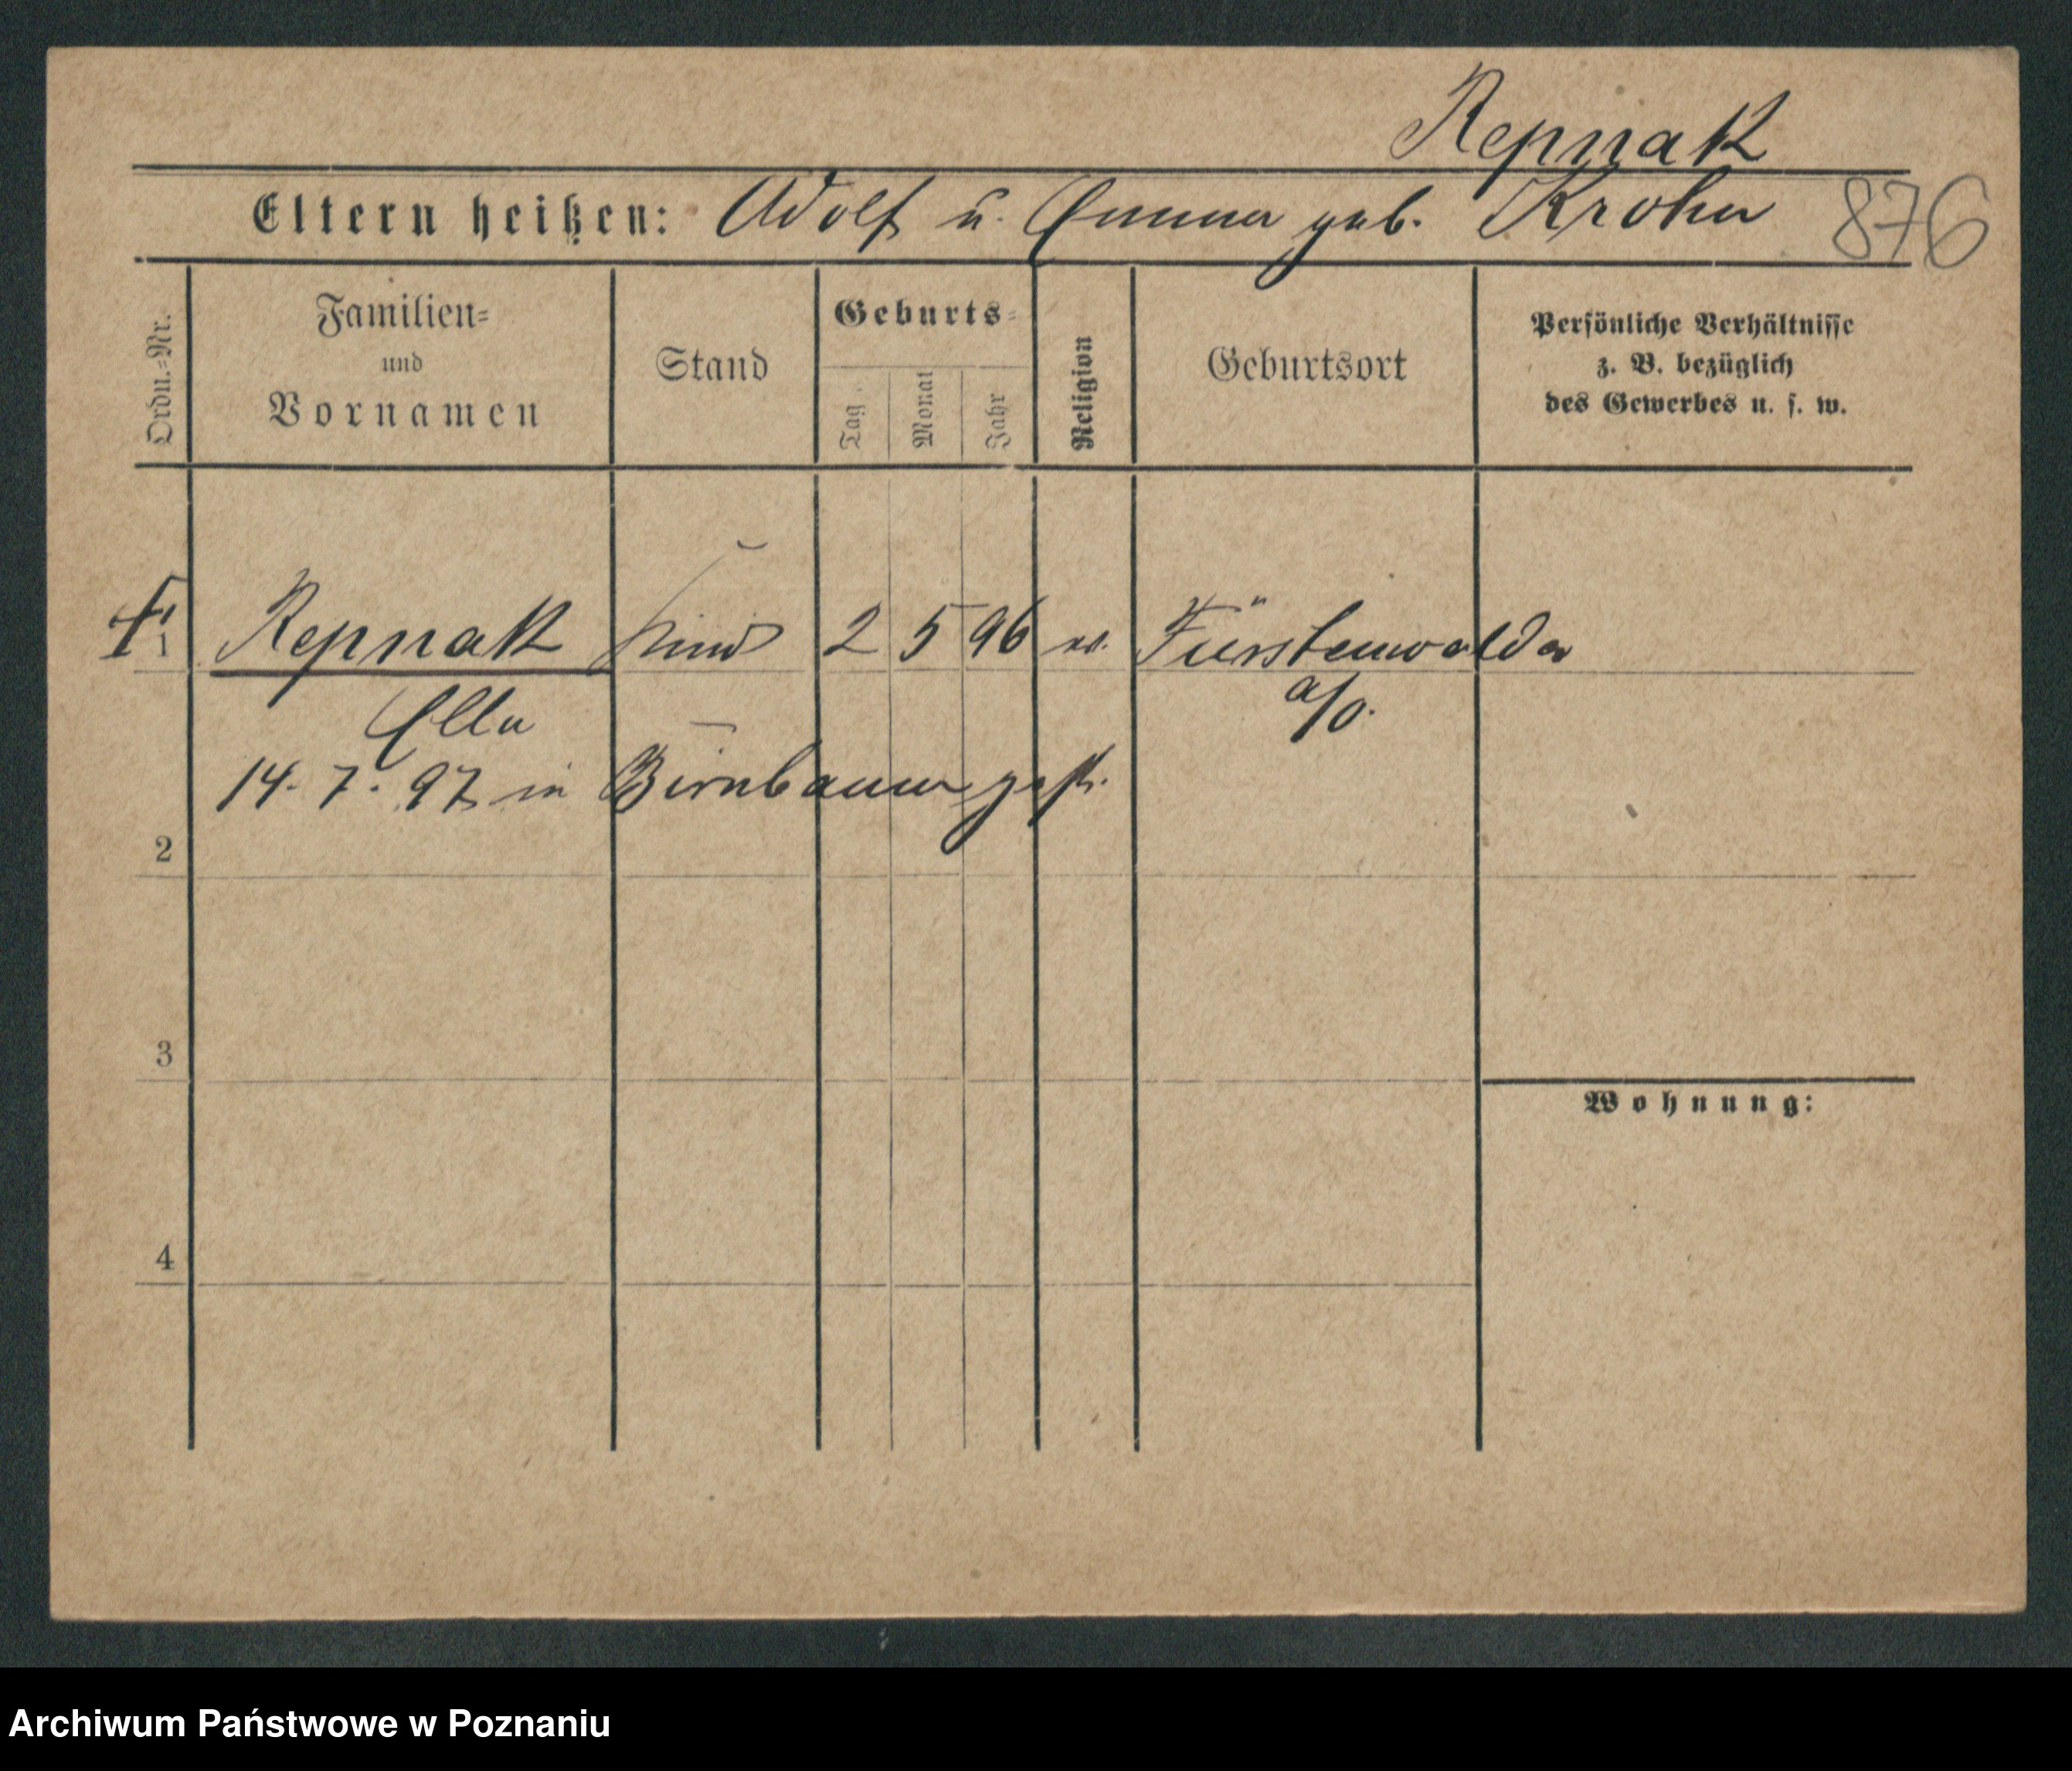 Repnak
Eltern heißen: Adolf u. Emma geb. Krohn 876
Ordn.=Nr.
Familien=
und
Vornamen
Stand
Geburts=
Tag
Monat
Jahr
Religion
Geburtsort
Persönliche Verhältnisse
z. B. bezüglich
des Gewerbes u. s. w.
1 Repnak Kind 2 5 96 ev. Fürstenwalde
Ella a/O.
14. 7. 97 in Birnbaum gest.
2
3
Wohnung:
4
Archiwum Państwowe w Poznaniu